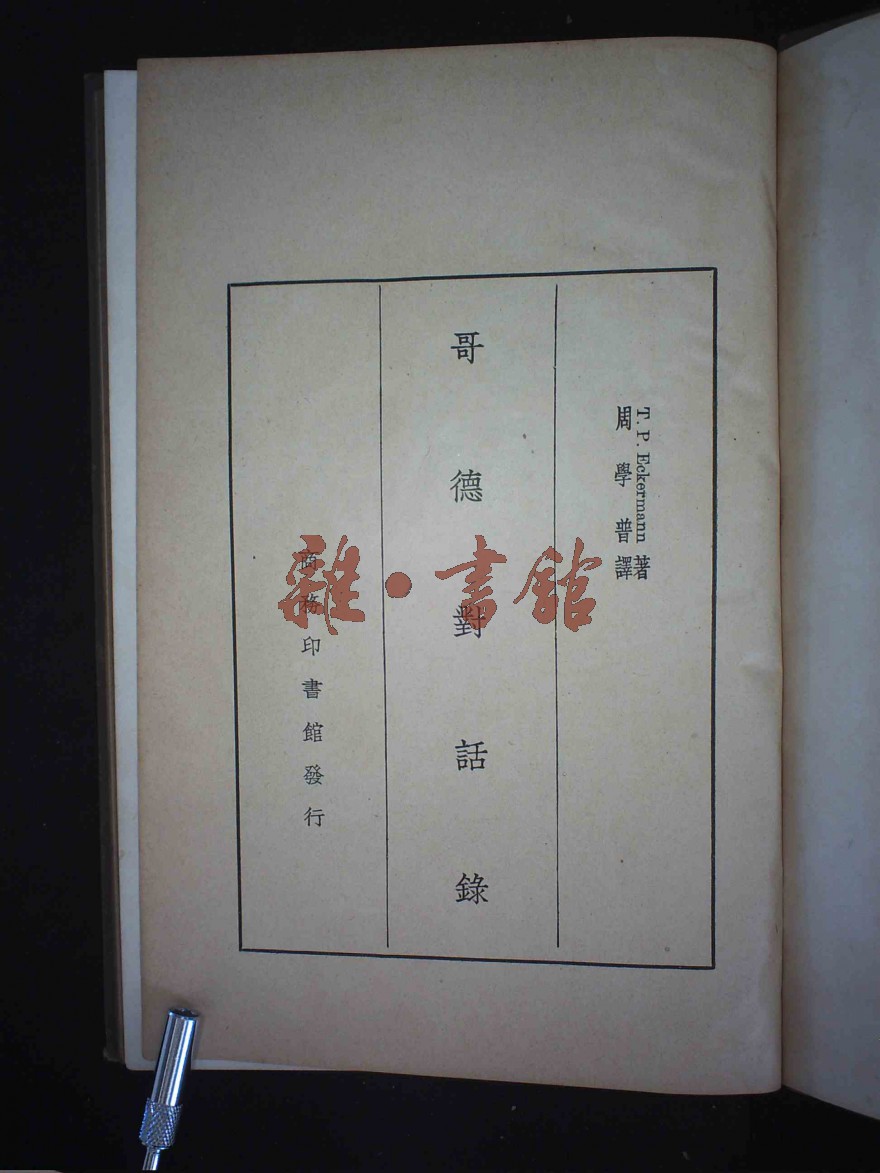 T. P. Eckermann 著
周學普譯
哥德對話錄
商務印書館發行
雜·書館